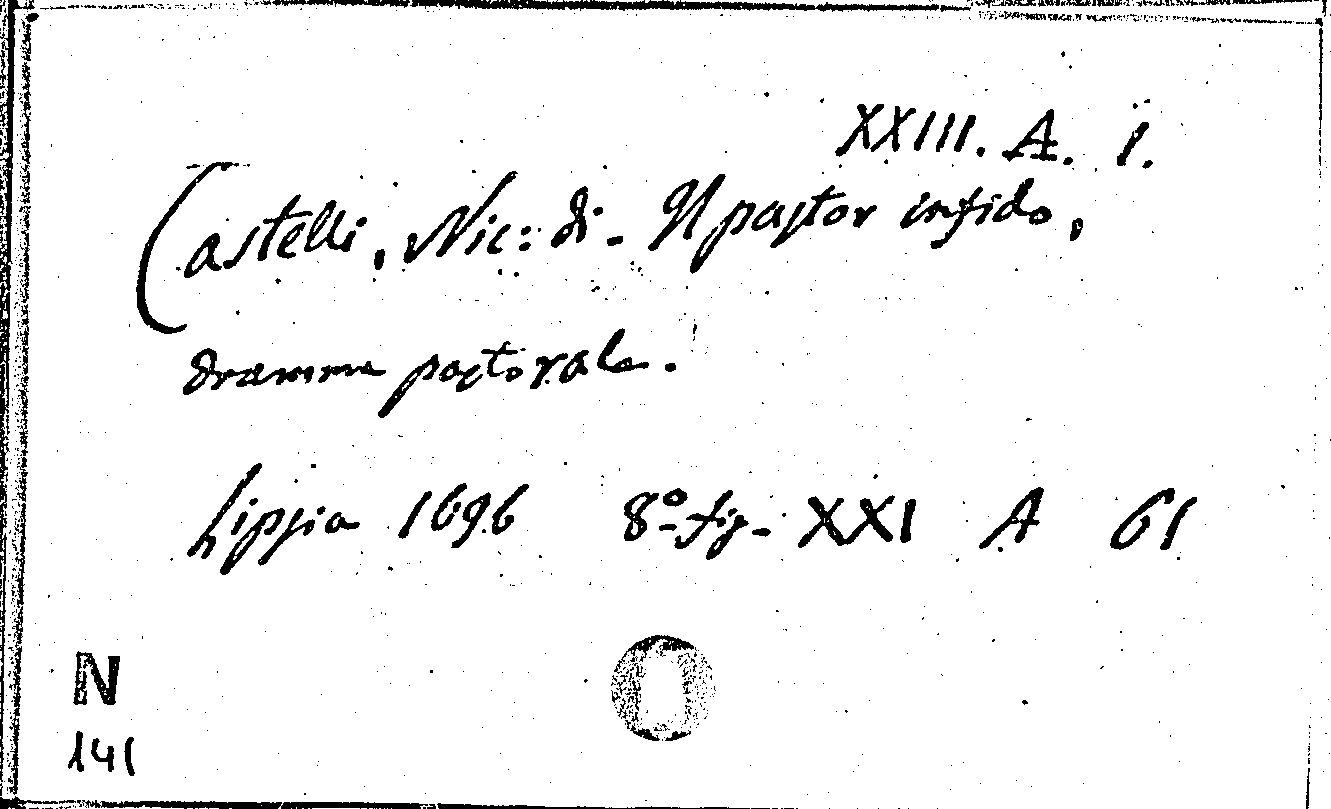 XXIII. A. 1.
Castelli, Nic: di - Il pastor infido,
dramma pastorale.
Lipsia 1696 8º- fig- XXI A 61
N
141